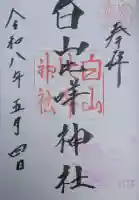 奉拝
白山比咩神社
白山
神社
令和八年五月四日